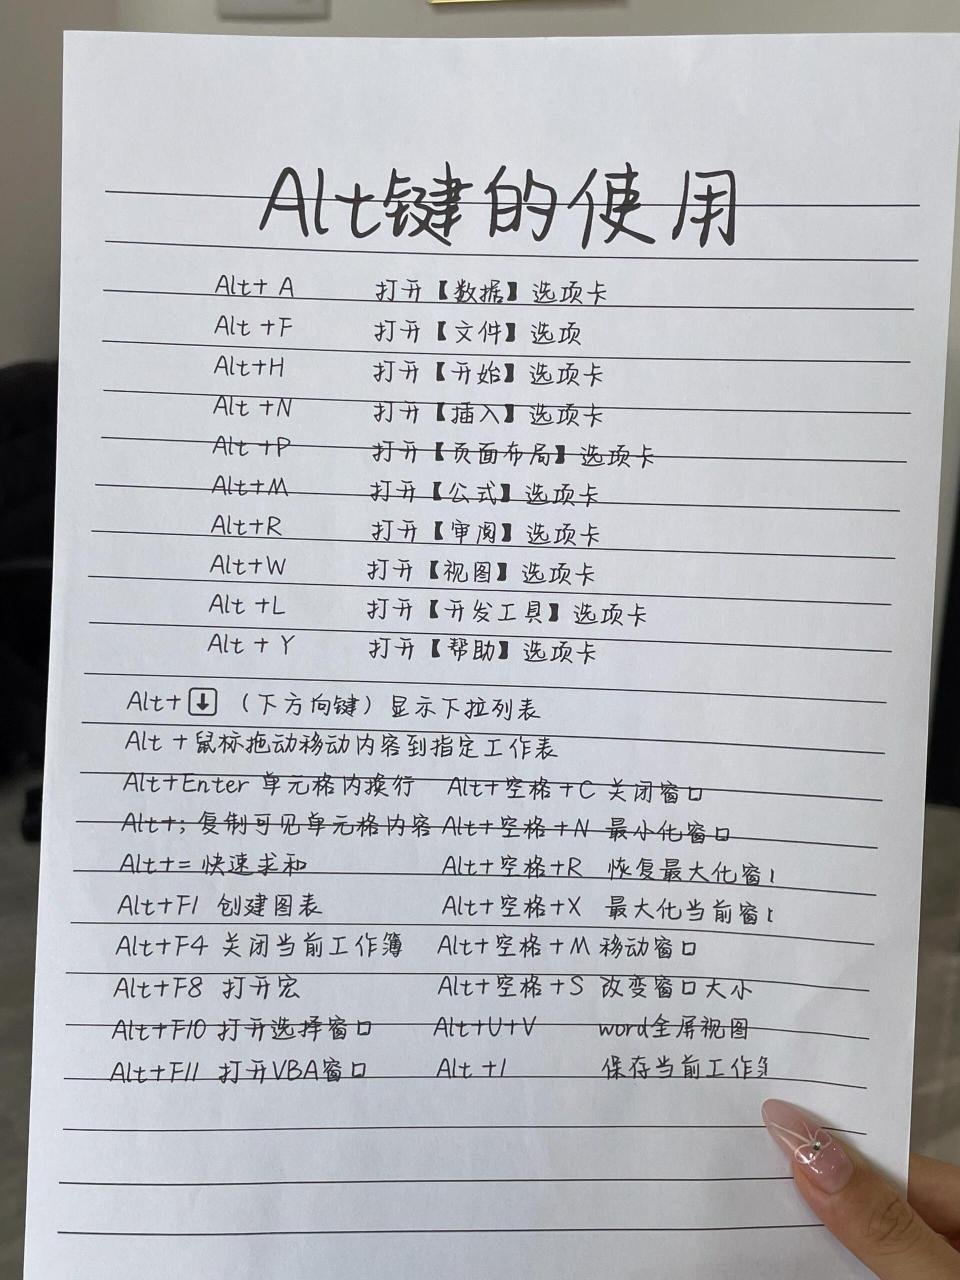 Alt键的使用
Alt+ A 打开【数据】选项卡
Alt +F 打开【文件】选项
Alt+H 打开【开始】选项卡
Alt +N 打开【插入】选项卡
Alt +P 打开【页面布局】选项卡
Alt+M 打开【公式】选项卡
Alt+R 打开【审阅】选项卡
Alt+W 打开【视图】选项卡
Alt +L 打开【开发工具】选项卡
Alt + Y 打开【帮助】选项卡
Alt+↓（下方向键）显示下拉列表
Alt +鼠标拖动移动内容到指定工作表
Alt+Enter 单元格内换行 Alt+空格+C 关闭窗口
Alt+; 复制可见单元格内容 Alt+空格+N 最小化窗口
Alt+= 快速求和 Alt+空格+R 恢复最大化窗
Alt+F1 创建图表 Alt+空格+X 最大化当前窗
Alt+F4 关闭当前工作簿 Alt+空格+M 移动窗口
Alt+F8 打开宏 Alt+空格+S 改变窗口大小
Alt+F10 打开选择窗口 Alt+U+V word全屏视图
Alt+F11 打开VBA窗口 Alt +1 保存当前工作